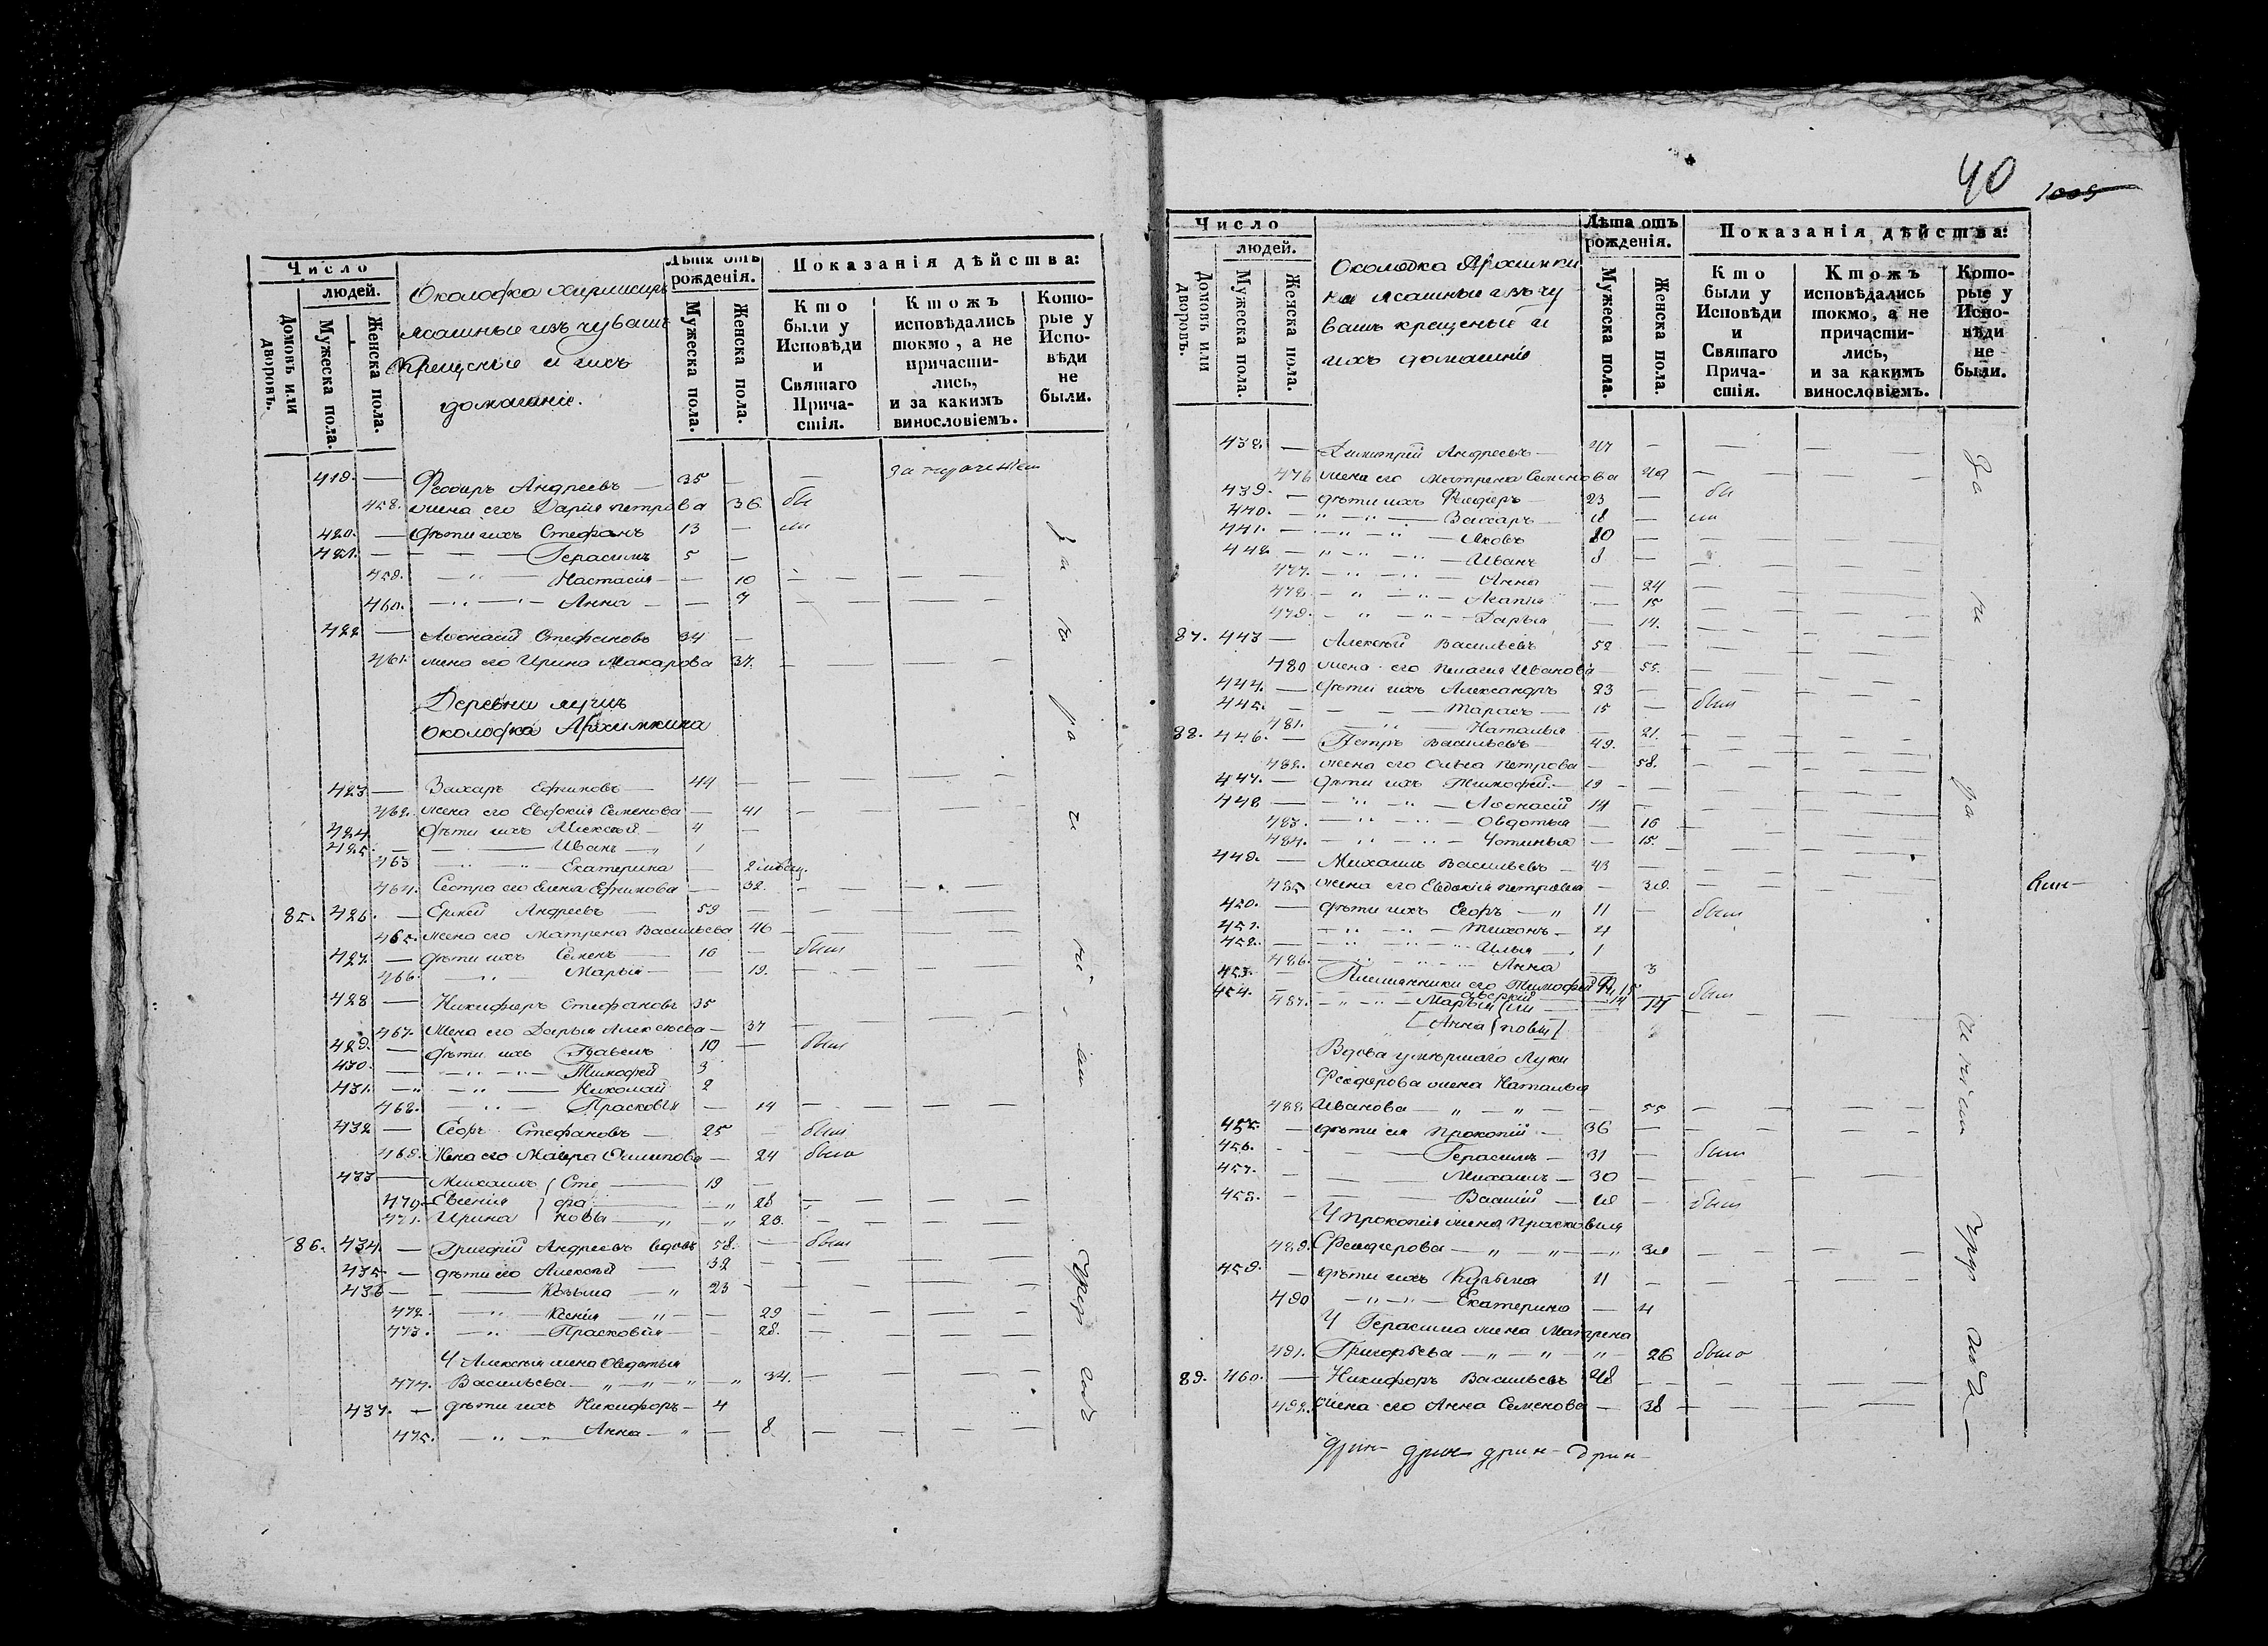 Число
людей.
Домовъ или дворовъ.
Мужеска пола.
Женска пола.
Околодка
ясашные изъ чувашъ
крещеные и ихъ
домашніе.
Лѣта отъ
рожденія.
Мужеска пола.
Женска пола.
Показанія дѣйства:
Кто были у Исповѣди и Святаго Причастія.
Ктожъ исповѣдались токмо, а не причастились, и за какимъ винословіемъ.
Которые у Исповѣди не были.
419. — Феодоръ Андреевъ — 35 —
458. жена его Дарія Петрова 36
420. — дѣти ихъ Стефанъ 13 —
421. — Герасимъ 5 —
459. Настасия — 10
460. Анна — 7
422 — Афонасій Стефановъ 34 —
461. жена его Ирина Макарова 37.
Деревни
околодка
423 — Захаръ Ефимовъ — 44 —
462. жена его Евдокия Семенова — 41
424. дѣти ихъ Алексѣй — 4 —
425. — Иванъ 1
463 Екатерина 2 мѣсяц.
464. Сестра его Елена Ефимова — 32.
85. 426. — Андреевъ — 59 —
465. жена его Матрена Васильева 46
427. — дѣти ихъ Семенъ 16 — былъ
466. Марья — 19.
428 — Никифоръ Стефановъ 35
467. жена его Дарья Алексеева — 37
429. — дѣти ихъ Павелъ 10 — былъ
430. — Тимофей 3
431. Николай 2
468. Прасковія — 14
432 — Егоръ Стефановъ — 25 — былъ
469. жена его Мавра — 24 была
433 — Михаилъ Сте 19 —
470 Евгения фа 28
471. Ирина новы 20.
86. 434. — Григорій Андреевъ вдовъ 58. — былъ
435 — дѣти его Алексѣй — 32
436 — Козьма 23
472. Ксения 29
473. Прасковія — 28.
У Алексѣя жена Овдотья
474. Васильева 34.
437. — дѣти ихъ Никифоръ — 4
475. Анна — 8
40
1005
Число
людей.
Домовъ или дворовъ.
Мужеска пола.
Женска пола.
Околодка
ясашные изъ чу
вашъ крещеные и
ихъ домашніе
Лѣта отъ
рожденія.
Мужеска пола.
Женска пола.
Показанія дѣйства:
Кто были у Исповѣди и Святаго Причастія.
Ктожъ исповѣдались токмо, а не причастились, и за какимъ винословіемъ.
Которые у Исповѣди не были.
438. — Димитрій Андреевъ —
476 жена его Матрена Семенова
439. — дѣти ихъ Феодоръ — 23 —
440. — Захаръ 18 —
441. — Яковъ 10 —
442 — Иванъ 8 —
477. Анна — 24
478. 15
479. Дарья — 14.
87. 443 — Алексѣй Васильевъ 52 —
480 жена его Пелагея Иванова 55.
444. — дѣти ихъ Александръ 23 — былъ
445. Тарасъ — 15 —
481. Наталья 21.
88. 446. — Петръ Васильевъ — 49. —
482. жена его Петрова — 58.
447. — дѣти ихъ Тимофей — 19
448 — Афонасій 14
483. Овдотья — 16
484. — 15.
449. — Михаилъ Васильевъ — 43 —
485 жена его Евдокия Петрова —
450. — дѣти ихъ Егоръ 11 — былъ
451. Тихонъ 4
452. Илья 1
486. Анна — 3
453. — Племянники его Тимофей
454. 14
487. Марья 17
Анна
Вдова умершаго Луки
Феодорова жена Наталья
488. Иванова 55
455 — дѣти ея Прокопій — 36 —
456. Герасимъ — 31 — былъ
457. Михаилъ — 30 —
458. Василій — былъ
У Прокопія жена Прасковия
489. Феодорова
459. — дѣти ихъ Кузьма 11 —
490 Екатерина — 4
У Герасима жена Матрена
491. Григорьева 26 была
89. 460. — Никифоръ Васильевъ
492. жена его Анна Семенова — 38